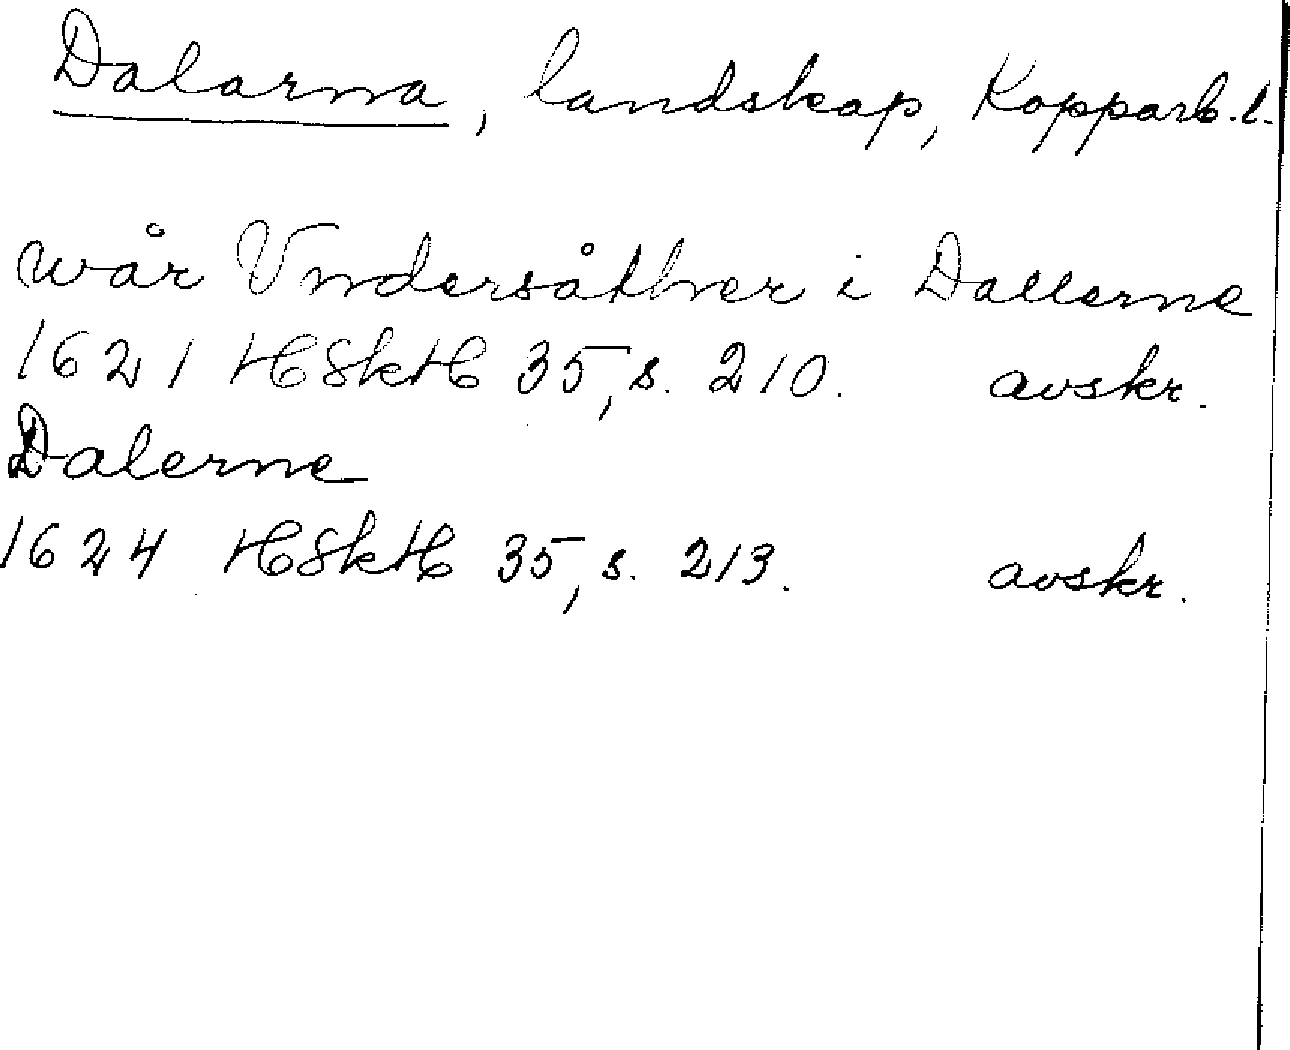 Dalarna, landskap, Kopparb. l.
wår Vndersåther i Dallerne
1621 HSkH 35, s. 210. avskr.
Dalerne
1624 HSkH 35, s. 213. avskr.